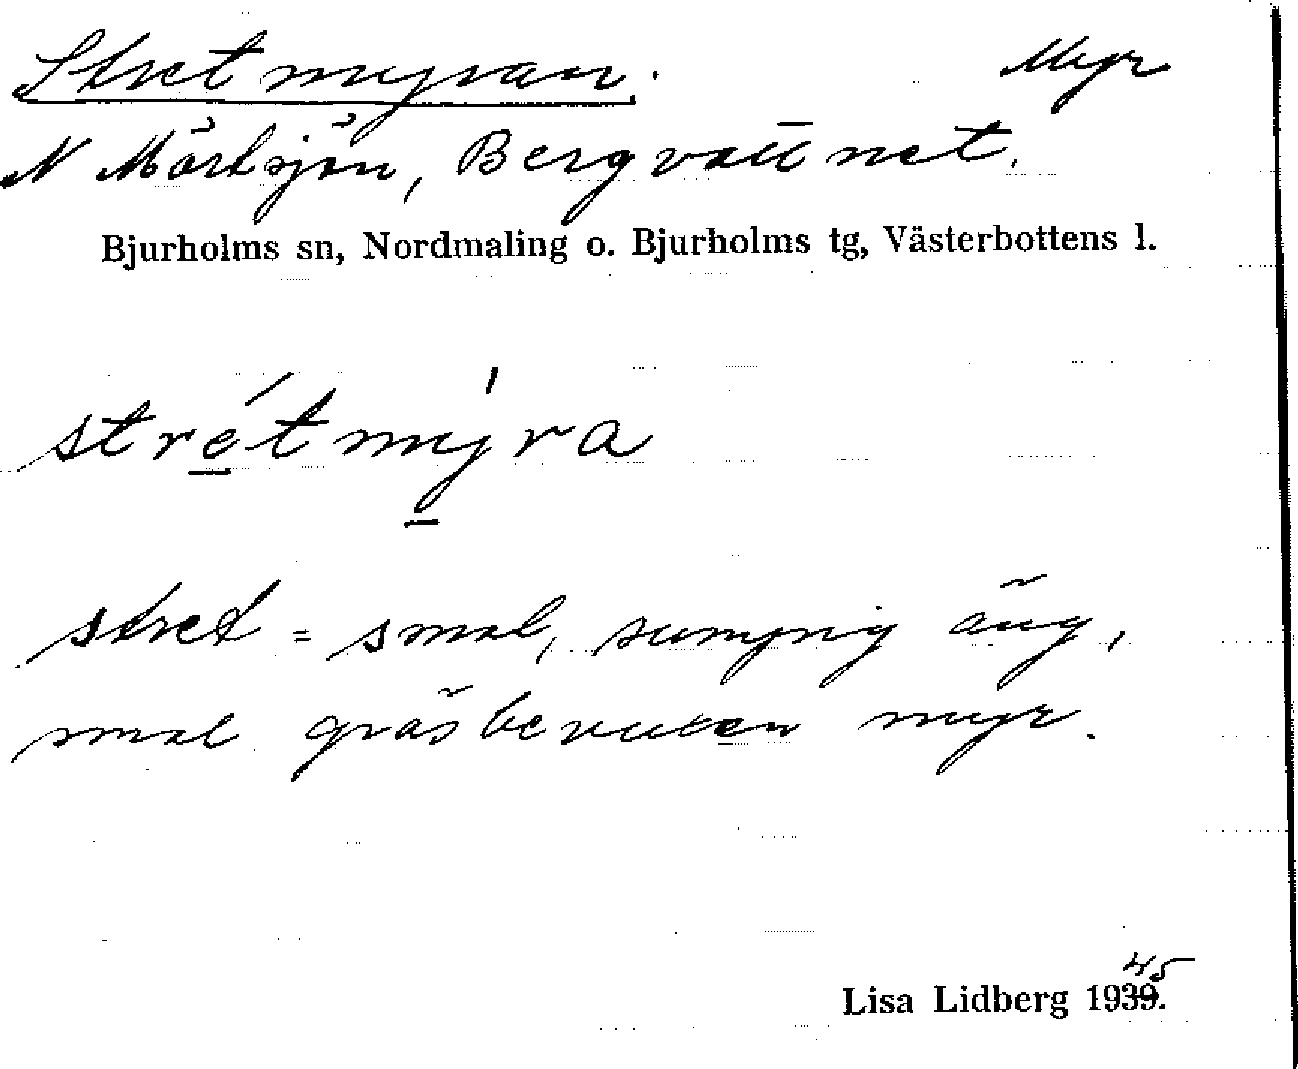 Stretmyran. Myr
N Mörtsjön, Bergvattnet.
Bjurholms sn, Nordmaling o. Bjurholms tg, Västerbottens l.
strétmy̍ra
stret = smal, sumpig äng,
smal gräsbevuxen myr.
45
Lisa Lidberg 1939.